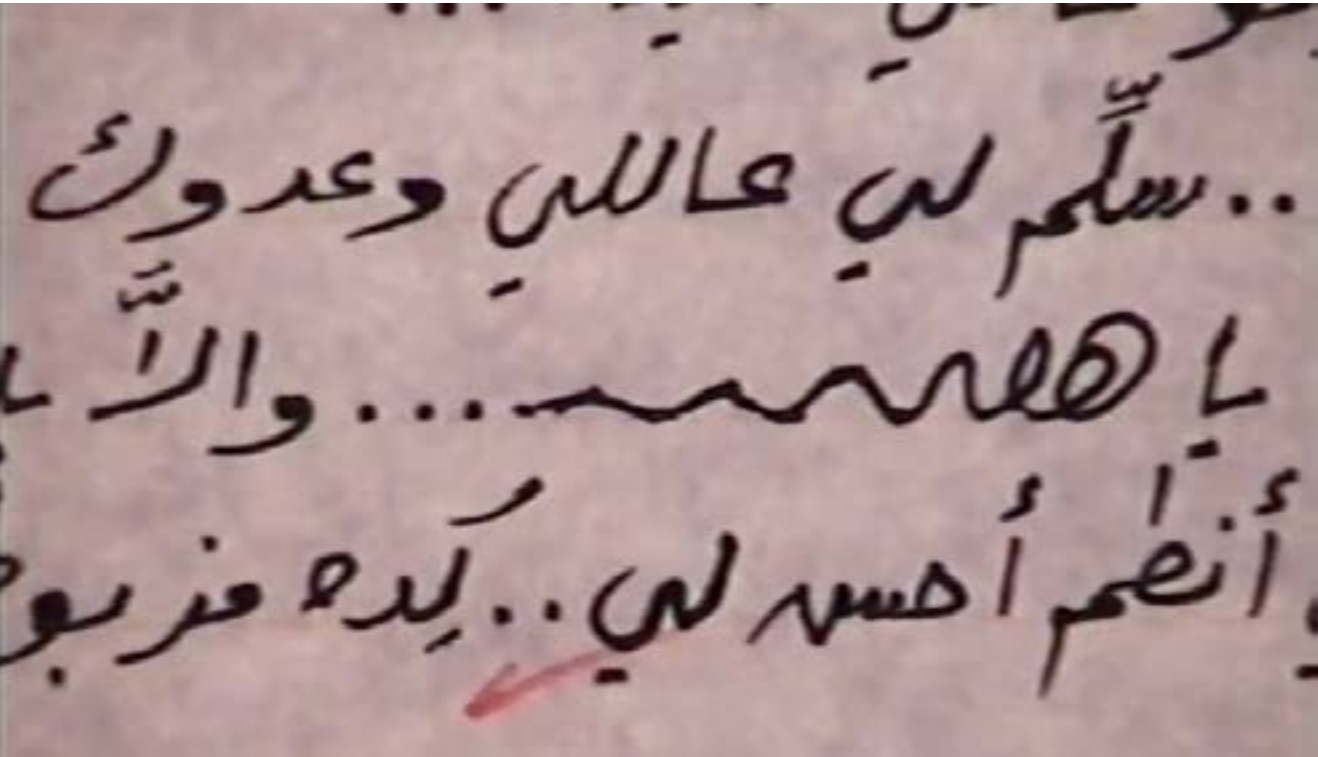 ..سلِّم لي عاللي وعدوك
يا ههههه.... والاَّ
أنطم أحسن لي.. كِده